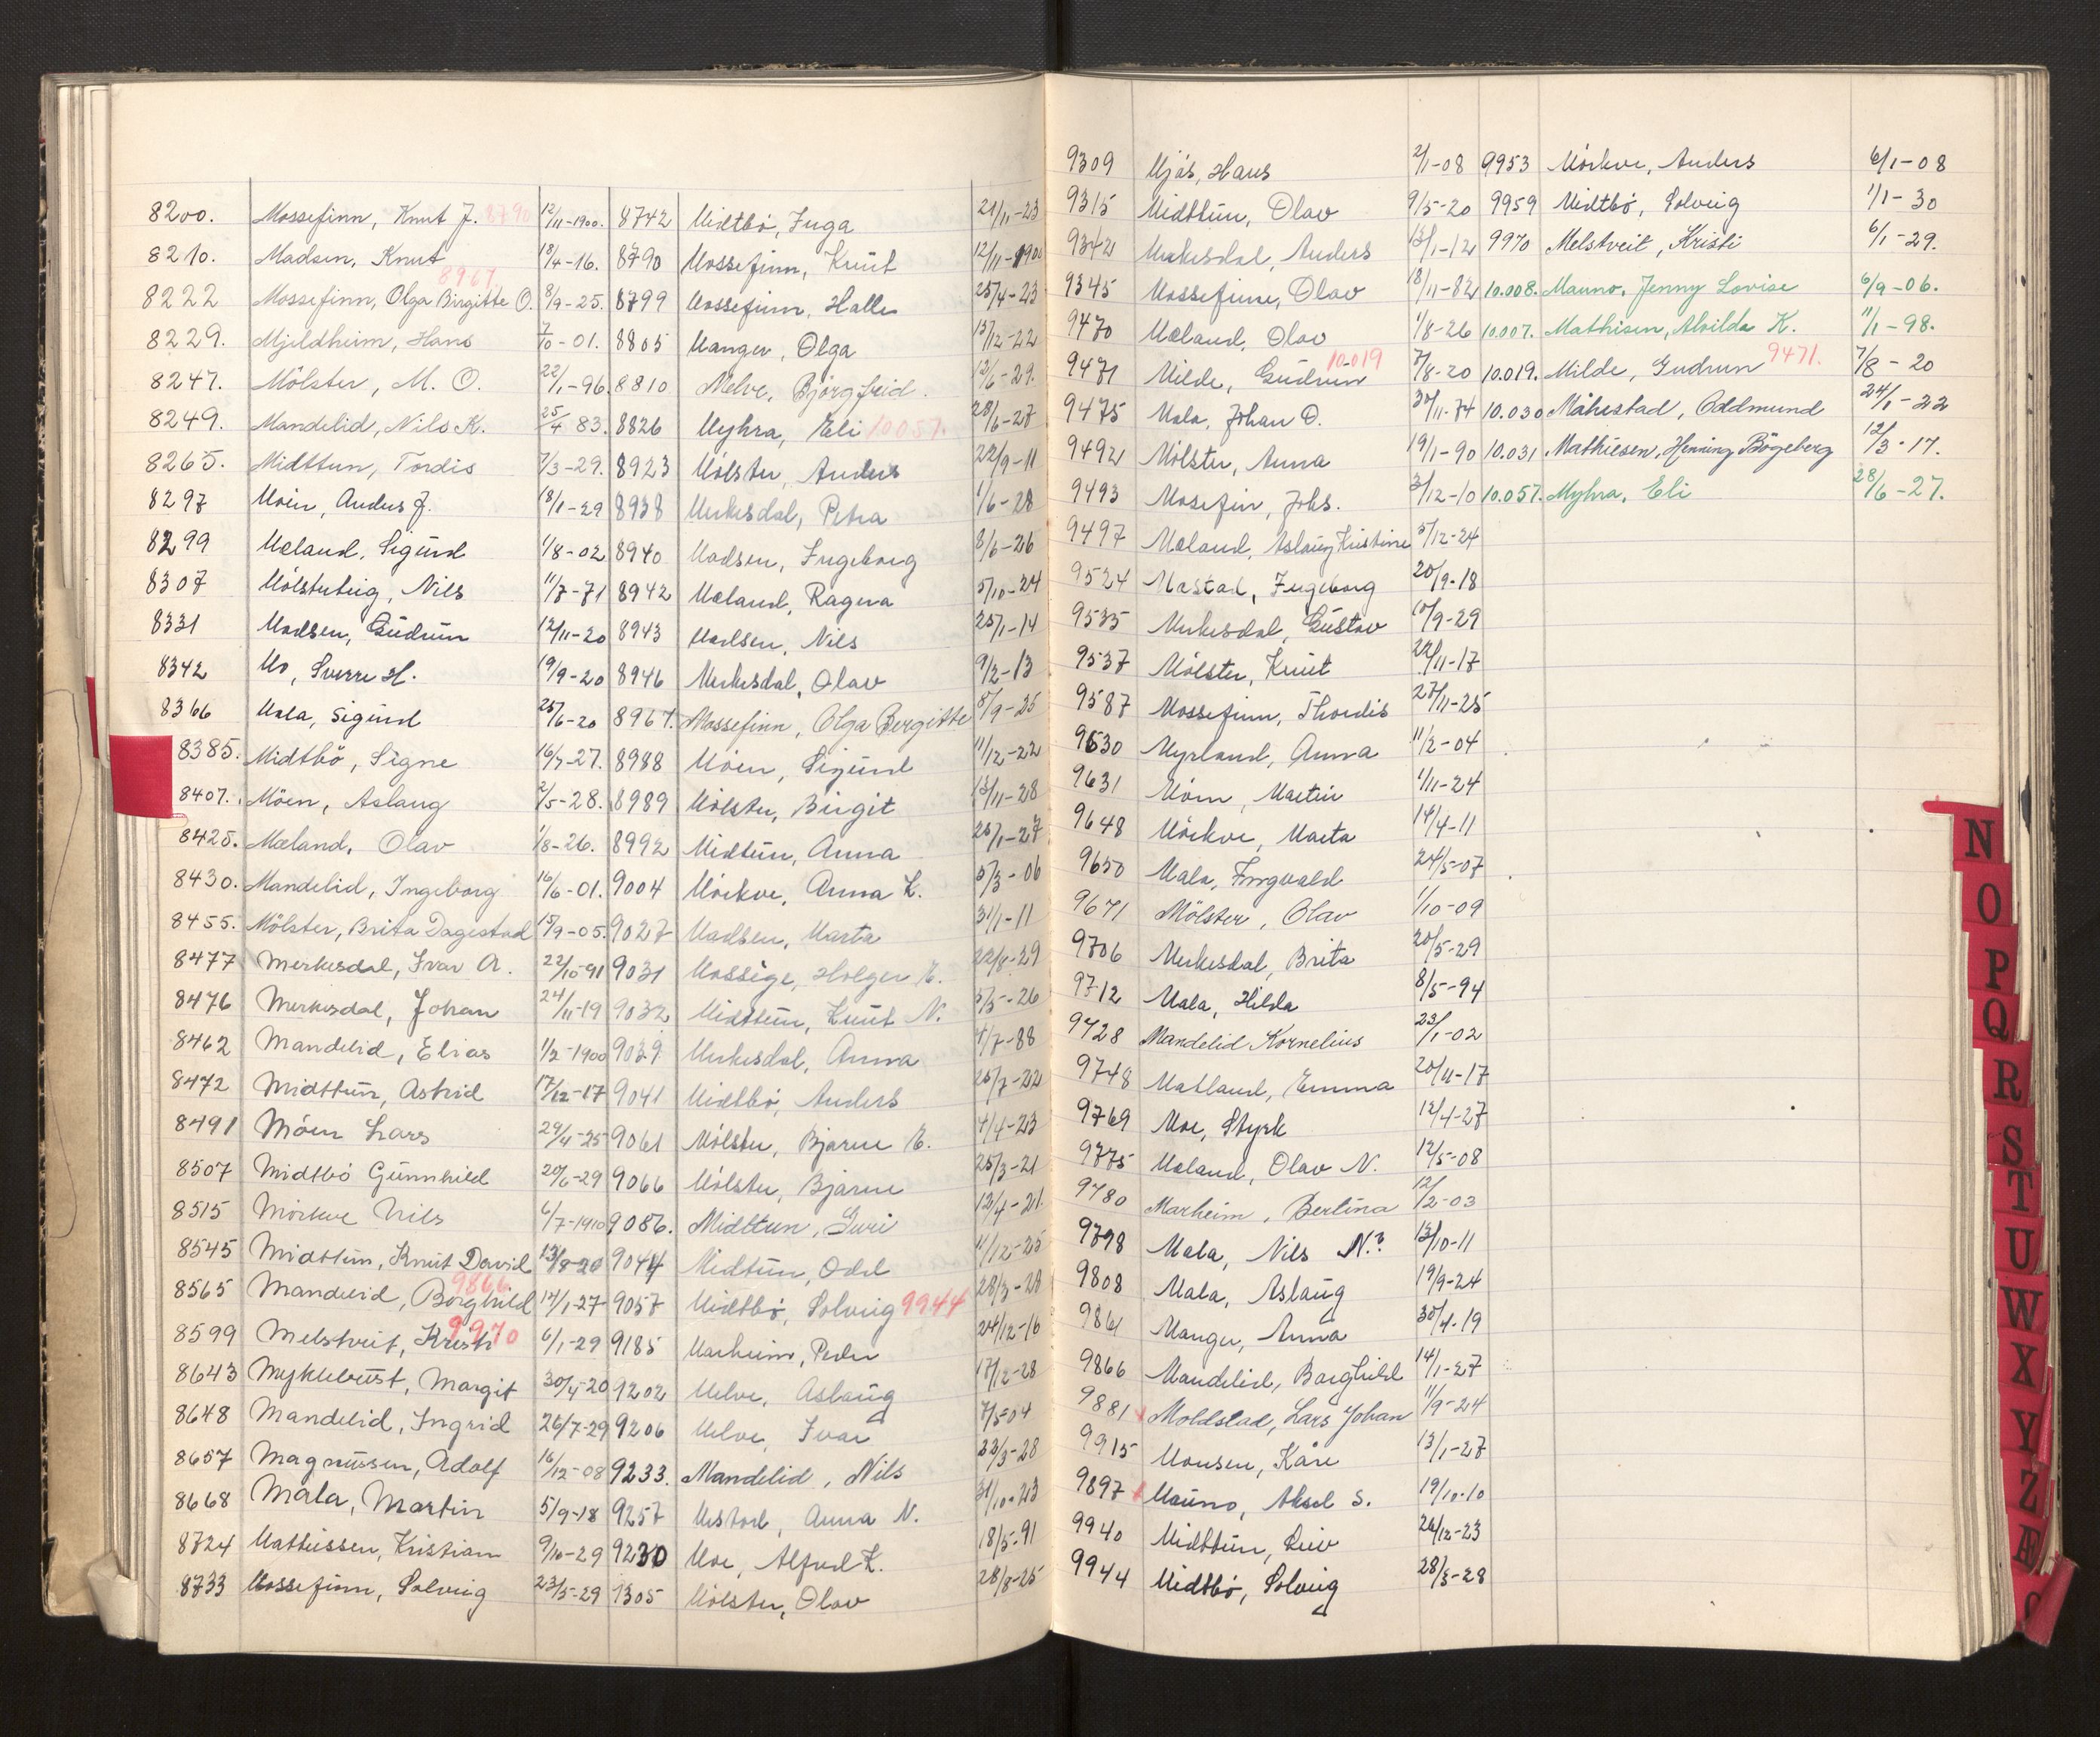 8200. Mossefinn, Knut J. 8790 12/11-1900.
8210. Madsen, Knut 18/4-16.
8222 Mossefinn, Olga Birgitte O. 8967 8/9-25.
8229. Mjeldheim, Hans 7/10-01.
8247. Mölster, M. O. 22/1-96.
8249. Mandelid, Nils K. 25/4 83.
8265. Midttun, Tordis 7/3-29.
8297 Moen, Anders J. 18/1-29
8299 Mæland, Sigurd 1/8-02
8307 Mölsterteig, Nils 11/7-71
8331 Madsen, Gudrun 12/11-20
8342 Mo, Sverre H. 19/9-20
8366 Mala, Sigurd 25/6-20
8385. Midtbö, Signe 16/7-27.
8407. Möen, Aslaug 2/5-28.
8425. Mæland, Olav 1/8-26.
8430. Mandelid, Ingeborg 16/6-01.
8455. Mölster, Brita Dagestad 15/9-05.
8477 Merkesdal, Ivar A. 22/10-91
8476 Merkesdal, Johan 24/11-19
8462 Mandelid, Elias 1/2-1900
8472 Midttun, Astrid 17/12-17
8491 Möen Lars 29/4-25
8507 Midtbö Gunnhild 20/6-29
8515 Mörkve Nils 6/7-1910
8545 Midttun, Knut David 13/8-20
8565 Mandelid, Borghild 9866 14/1-27
8599 Melstveit, Kristi 9970 6/1-29
8643 Myklebust, Margit 30/4-20
8648 Mandelid, Ingrid 26/7-29
8657 Magnussen, Adolf 16/12-08
8668 Mala, Martin 5/9-18
8724 Mathiessen, Kristian 9/10-29
8733 Mossefinn, Solveig 23/5-29
8742 Midtbö, Inga 21/11-23
8790 Mossefinn, Knut 12/11-1900
8799 Mossefinn, Halle 25/4-23
8805 Manger, Olga 13/12-22
8810 Melve, Björgfrid. 12/6-29.
8826 Myhra, Eli 10057. 28/6-27
8923 Mölster, Anders 22/9-11
8938 Merkesdal, Petra 1/6-28
8940 Madsen, Ingeborg 8/6-26
8942 Mæland, Ragna 5/10-24
8943 Madsen, Nils 25/1-14
8946 Merkesdal, Olav 9/2-13
8967. Mossefinn, Olga Bergitte 8/9-25
8988 Möen, Sigurd 11/12-22
8989 Mölster, Birgit 13/11-28
8992 Midtun, Anna 25/1-27
9004 Mörkve, Anna K. 5/3-06
9027 Madsen, Marta 31/1-11
9031 Mossige, Holger E. 22/8-29
9032 Midttun, Knut N. 5/5-26
9039 Merkesdal, Anna 4/7-88
9041 Midtbö, Anders 25/7-22
9061 Mölster, Bjarne E. 4/4-23
9066 Mölster, Bjarne 25/3-21
9086. Midttun, Guri 12/4-21.
9044 Midtun, Odd 11/12-25
9057 Midtbö, Solveig 9944 28/3-28
9185 Marheim, Peder 24/12-16
9202 Melve, Aslaug 17/12-28
9206 Melve, Ivar 7/5-04
9233. Mandelid, Nils 23/3-28
9257 Mestad, Anna N. 31/10-23
9230 Moe, Alfred K. 18/5-91
1305 Mölster, Olav 28/8-25
9309 Mjös, Hans 2/1-08
9315 Midttun, Olav 9/5-20
9342 Merkesdal, Anders 13/1-12
9345 Mossefinn, Olav 18/11-82
9470 Mæland, Olav 1/8-26
9471 Milde, Gudrun 10.019 7/8-20
9475 Mala, Johan O. 30/11-74
9492 Mölster, Anna 19/1-90
9493 Mosefin, Johs. 3/12-10
9497 Mæland, Aslaug Kristine 5/12-24
9524 Mæstad, Ingeborg 20/9-18
9535 Merkesdal, Gustav 10/9-29
9537 Mölster, Knut 22/11-17
9587 Mossefinn, Thordis 27/11-25
9630 Myrland, Anna 11/2-04
9631 Möen, Martin 1/11-24
9648 Mörkve, Marta 14/4-11
9650 Mala, Ingvald 24/5-07
9671 Mölster, Olav 1/10-09
9706 Merkesdal, Brita 20/5-29
9712 Mala, Hilda 8/5-94
9728 Mandelid Kornelius 23/1-02
9748 Matland, Emma 20/11-17
9769 Moe, Styrk 12/4-27
9775 Mæland, Olav N. 12/5-08
9780 Marheim, Berlina 12/2-03
9798 Mala, Nils N.? 13/10-11
9808 Mala, Aslaug 19/9-24
9861 Manger, Anna 30/4-19
9866 Mandelid, Borghild 14/1-27
9881 Moldstad, Lars Johan 11/9-24
9915 Monsen, Kåre 13/1-27
9897 Mauno, Aksel S. 19/10-10
9940 Midttun, Leiv 26/12-23
9944 Midtbö, Solveig 28/3-28
9953 Mörkve, Anders 6/1-08
9959 Midtbö, Solveig 1/1-30
9970 Melstveit, Kristi 6/1-29.
10.008. Mauno, Jenny Lovise 6/9-06.
10.007. Mathisen, Alvilda K. 11/1-98.
10.019. Milde, Gudrun 9471. 7/8-20
10.030 Måkestad, Oddmund 24/1-22
10.031 Mathiesen, Henning Bögeberg 12/3-17.
10.057. Myhra, Eli 28/6-27.
N
O
P
Q
R
S
T
U
W
X
Y
Z
Æ